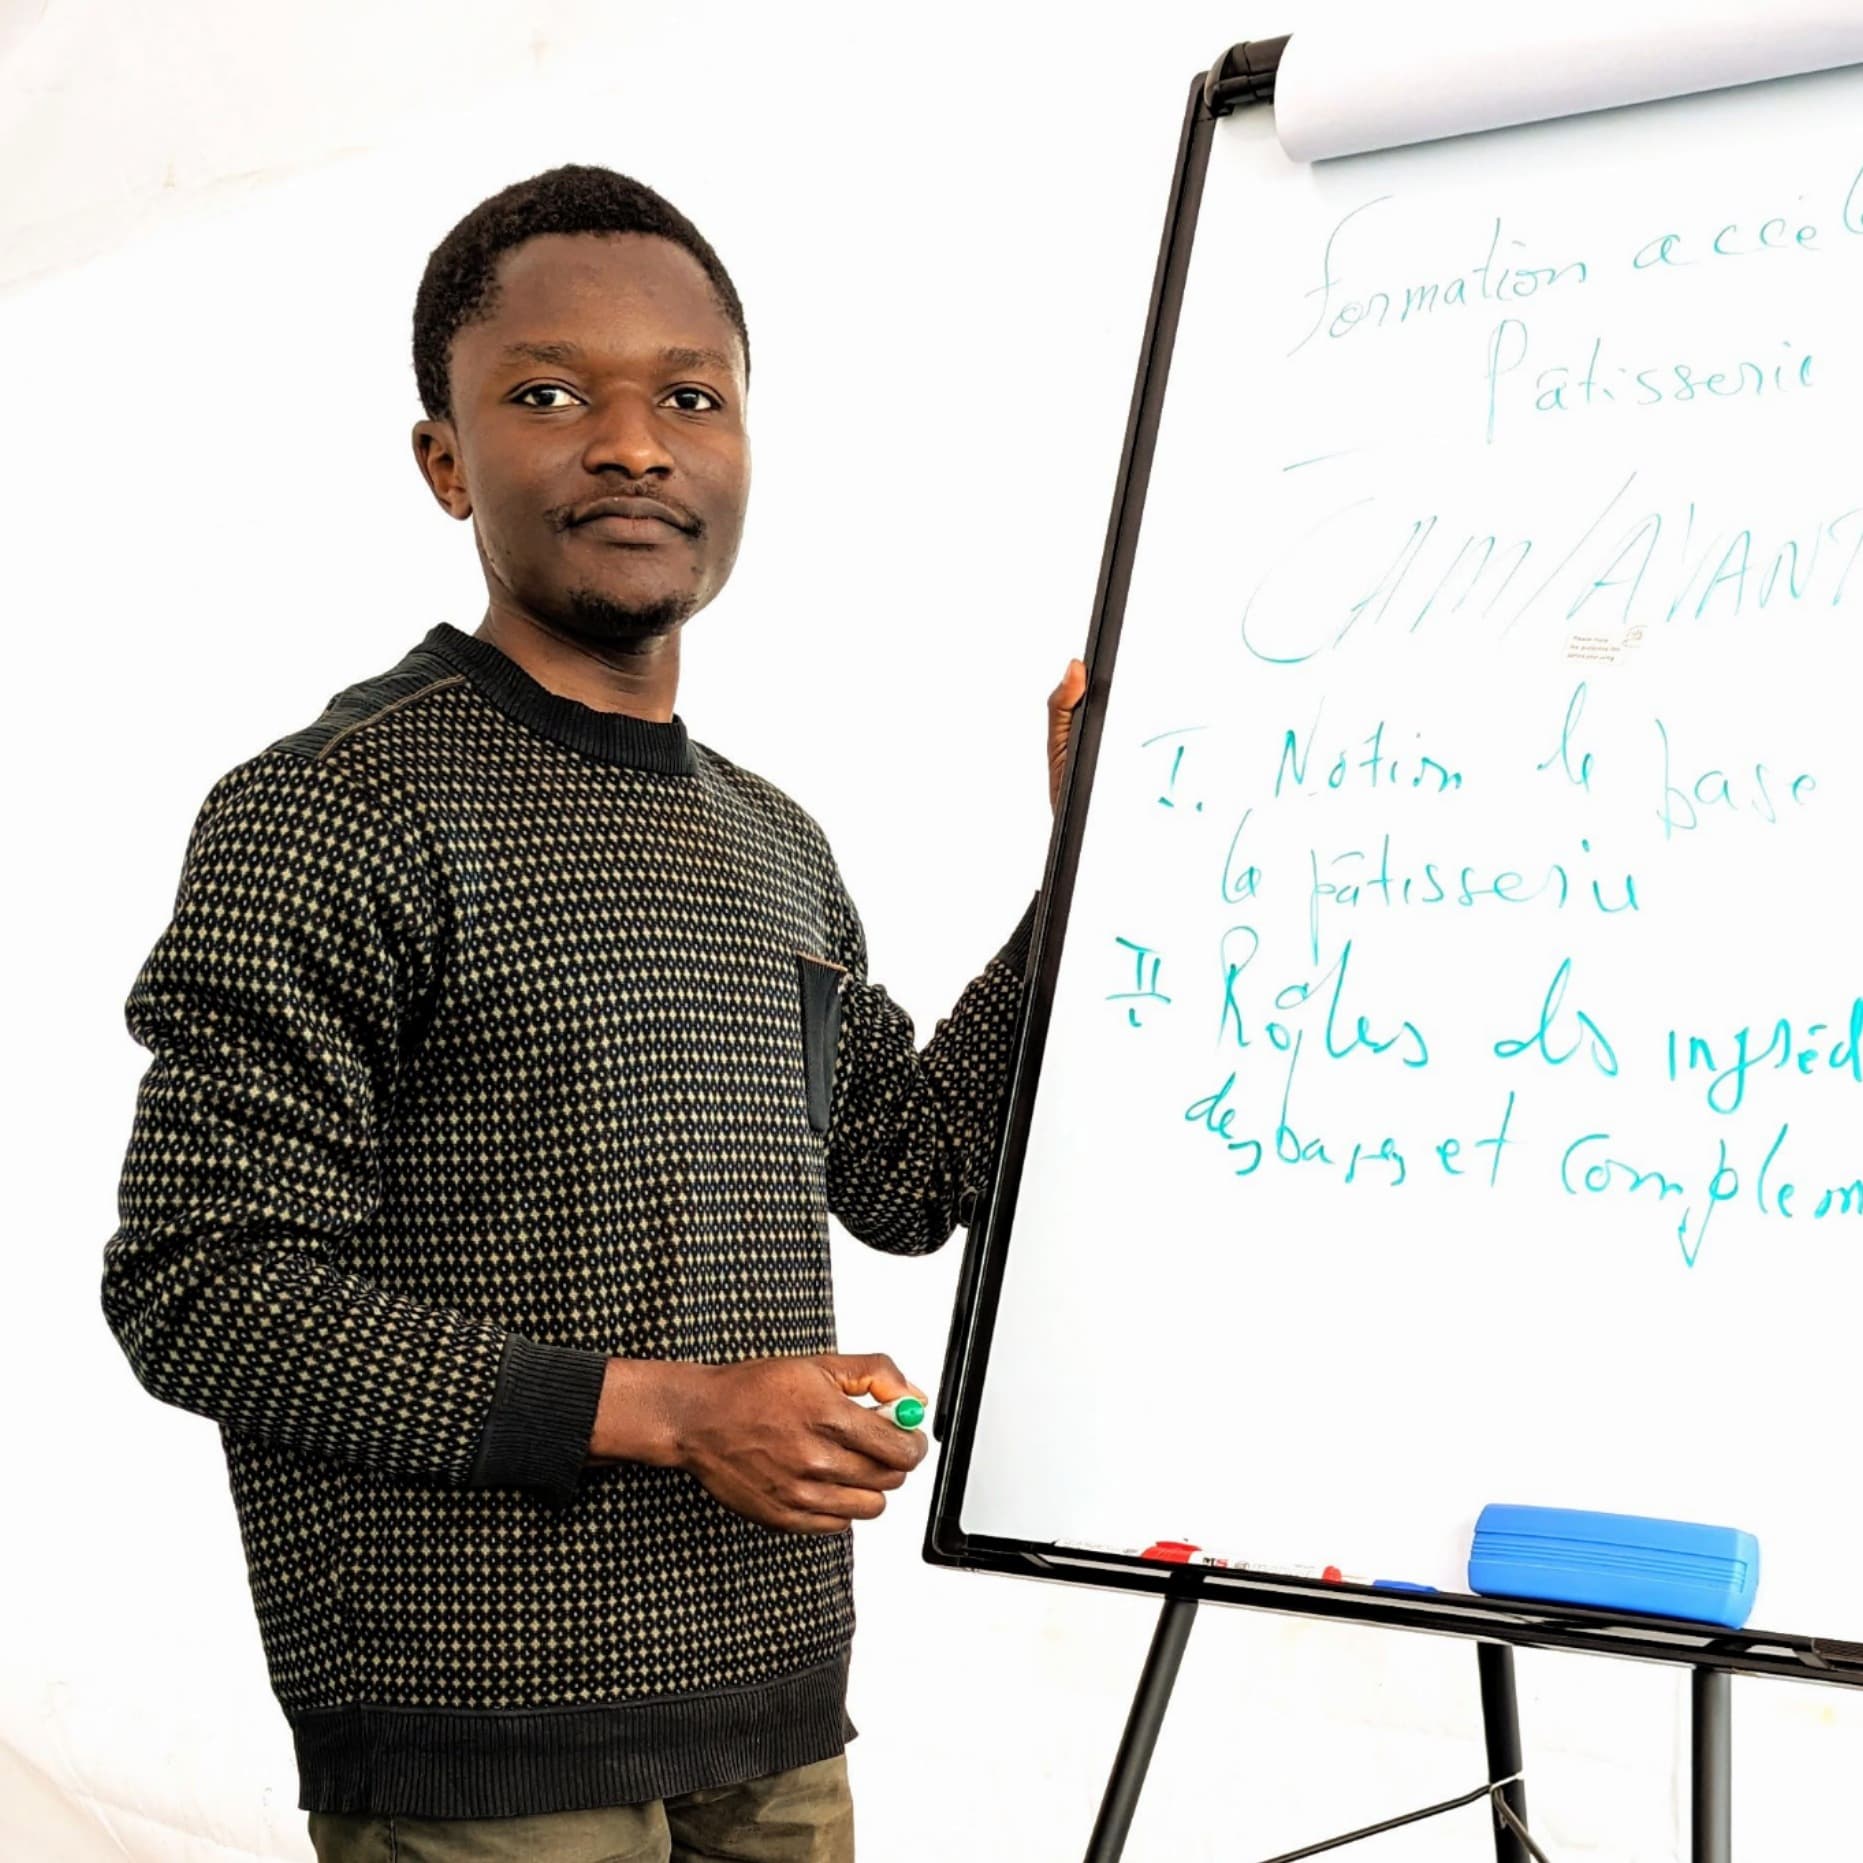 Formation accél
Pâtisserie
CAM/AVANT
I. Notion de base
la pâtisserie
II Rôles des ingréd
des bases et complem